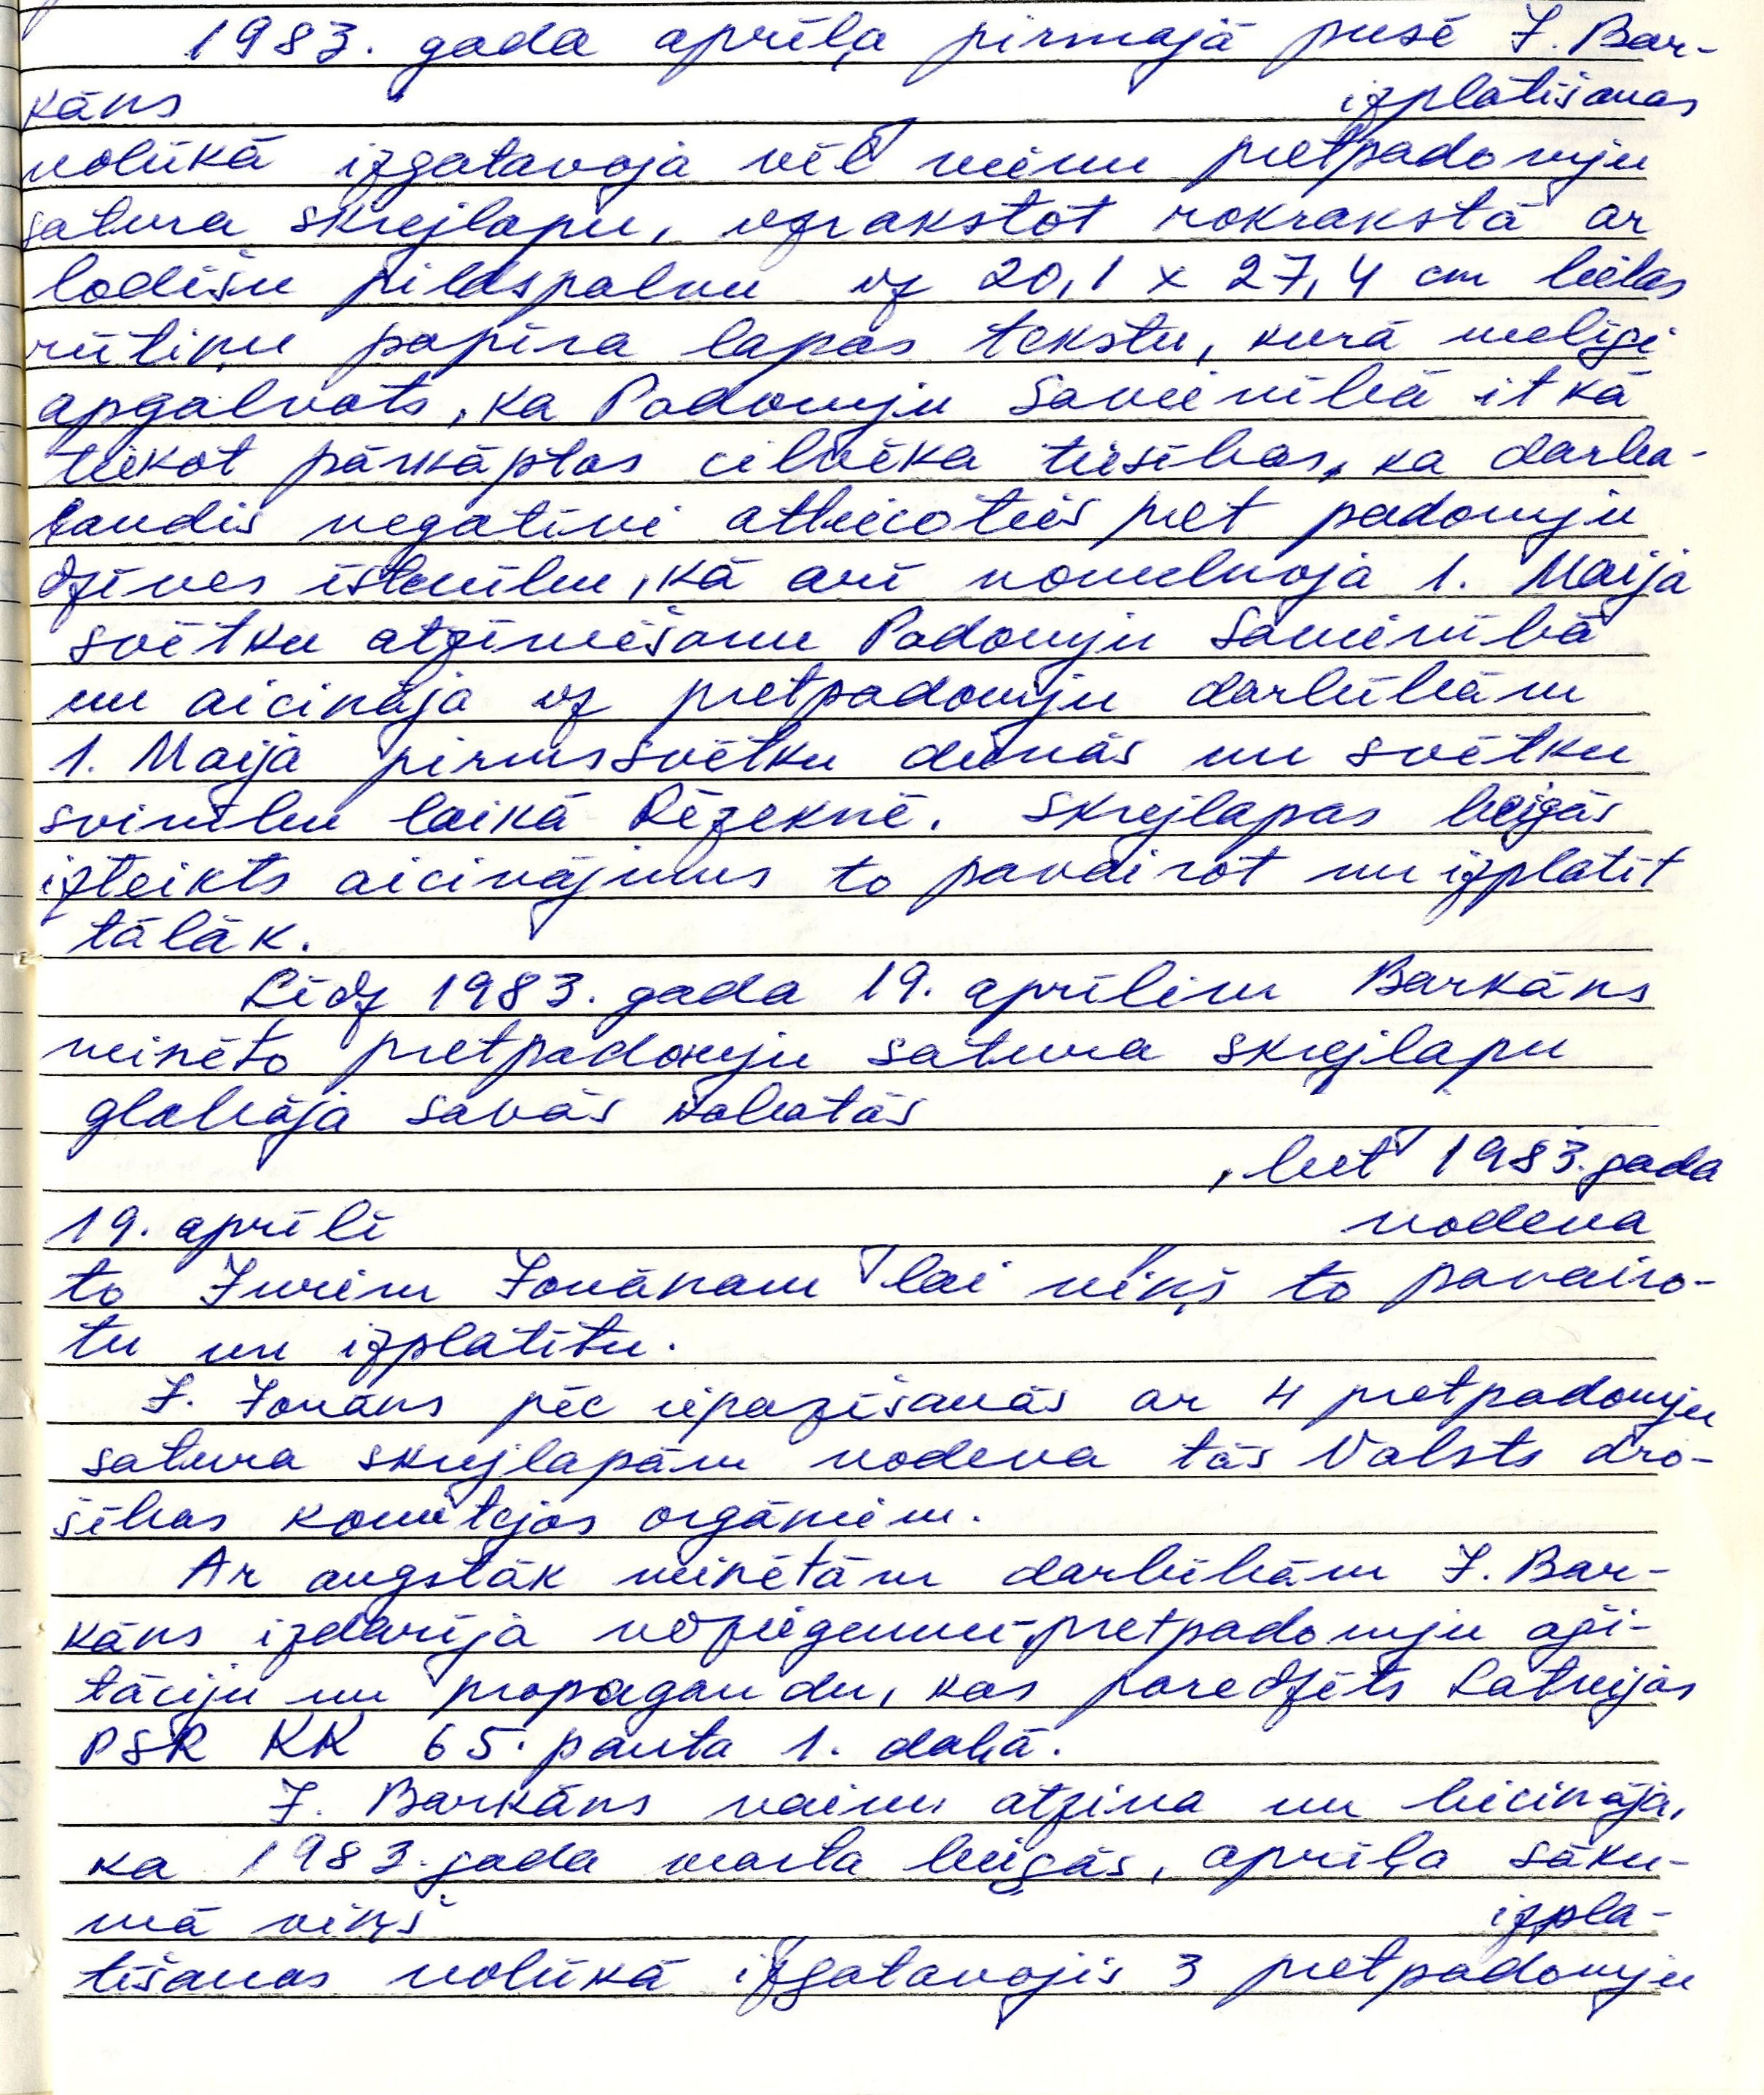 1983. gada aprīļa pirmajā pusē J. Bar-
kāns izplatīšanas
nolūkā izgatavoja vēl vienu pretpadomju
satura skrejlapu, uzrakstot rokrakstā ar
lodīšu pildspalvu uz 20,1 x 27,4 cm lielas
rūtiņu papīra lapas tekstu, kurā melīgi
apgalvots, ka Padomju Savienībā it kā
tiekot pārkāptas cilvēka tiesības, ka darba-
ļaudis negatīvi attiecoties pret padomju
dzīves īstenību, kā arī nomelnoja 1. Maija
svētku atzīmēšanu Padomju Savienībā
un aicināja uz pretpadomju darbībām
1. Maija pirmssvētku dienās un svētku
svinību laikā Rēzeknē. Skrejlapas beigās
izteikts aicinājums to pavairot un izplatīt
tālāk.
Līdz 1983. gada 19. aprīlim Barkāns
minēto pretpadomju satura skrejlapu
glabāja savās kabatās
, bet 1983. gada
19. aprīlī nodeva
to Jurim Jonānam lai viņš to pavairo-
tu un izplatītu.
J. Jonāns pēc iepazīšanās ar 4 pretpadomju
satura skrejlapām nodeva tās Valsts dro-
šības komitejas orgāniem.
Ar augstāk minētām darbībām J. Bar-
kāns izdarīja noziegumu-pretpadomju aģi-
tāciju un propagandu, kas paredzēts Latvijas
PSR KK 65. panta 1. daļā.
J. Barkāns vainu atzina un liecināja,
ka 1983. gada marta beigās, aprīļa sāku-
mā viņš izpla-
tīšanas nolūkā izgatavojis 3 pretpadomju